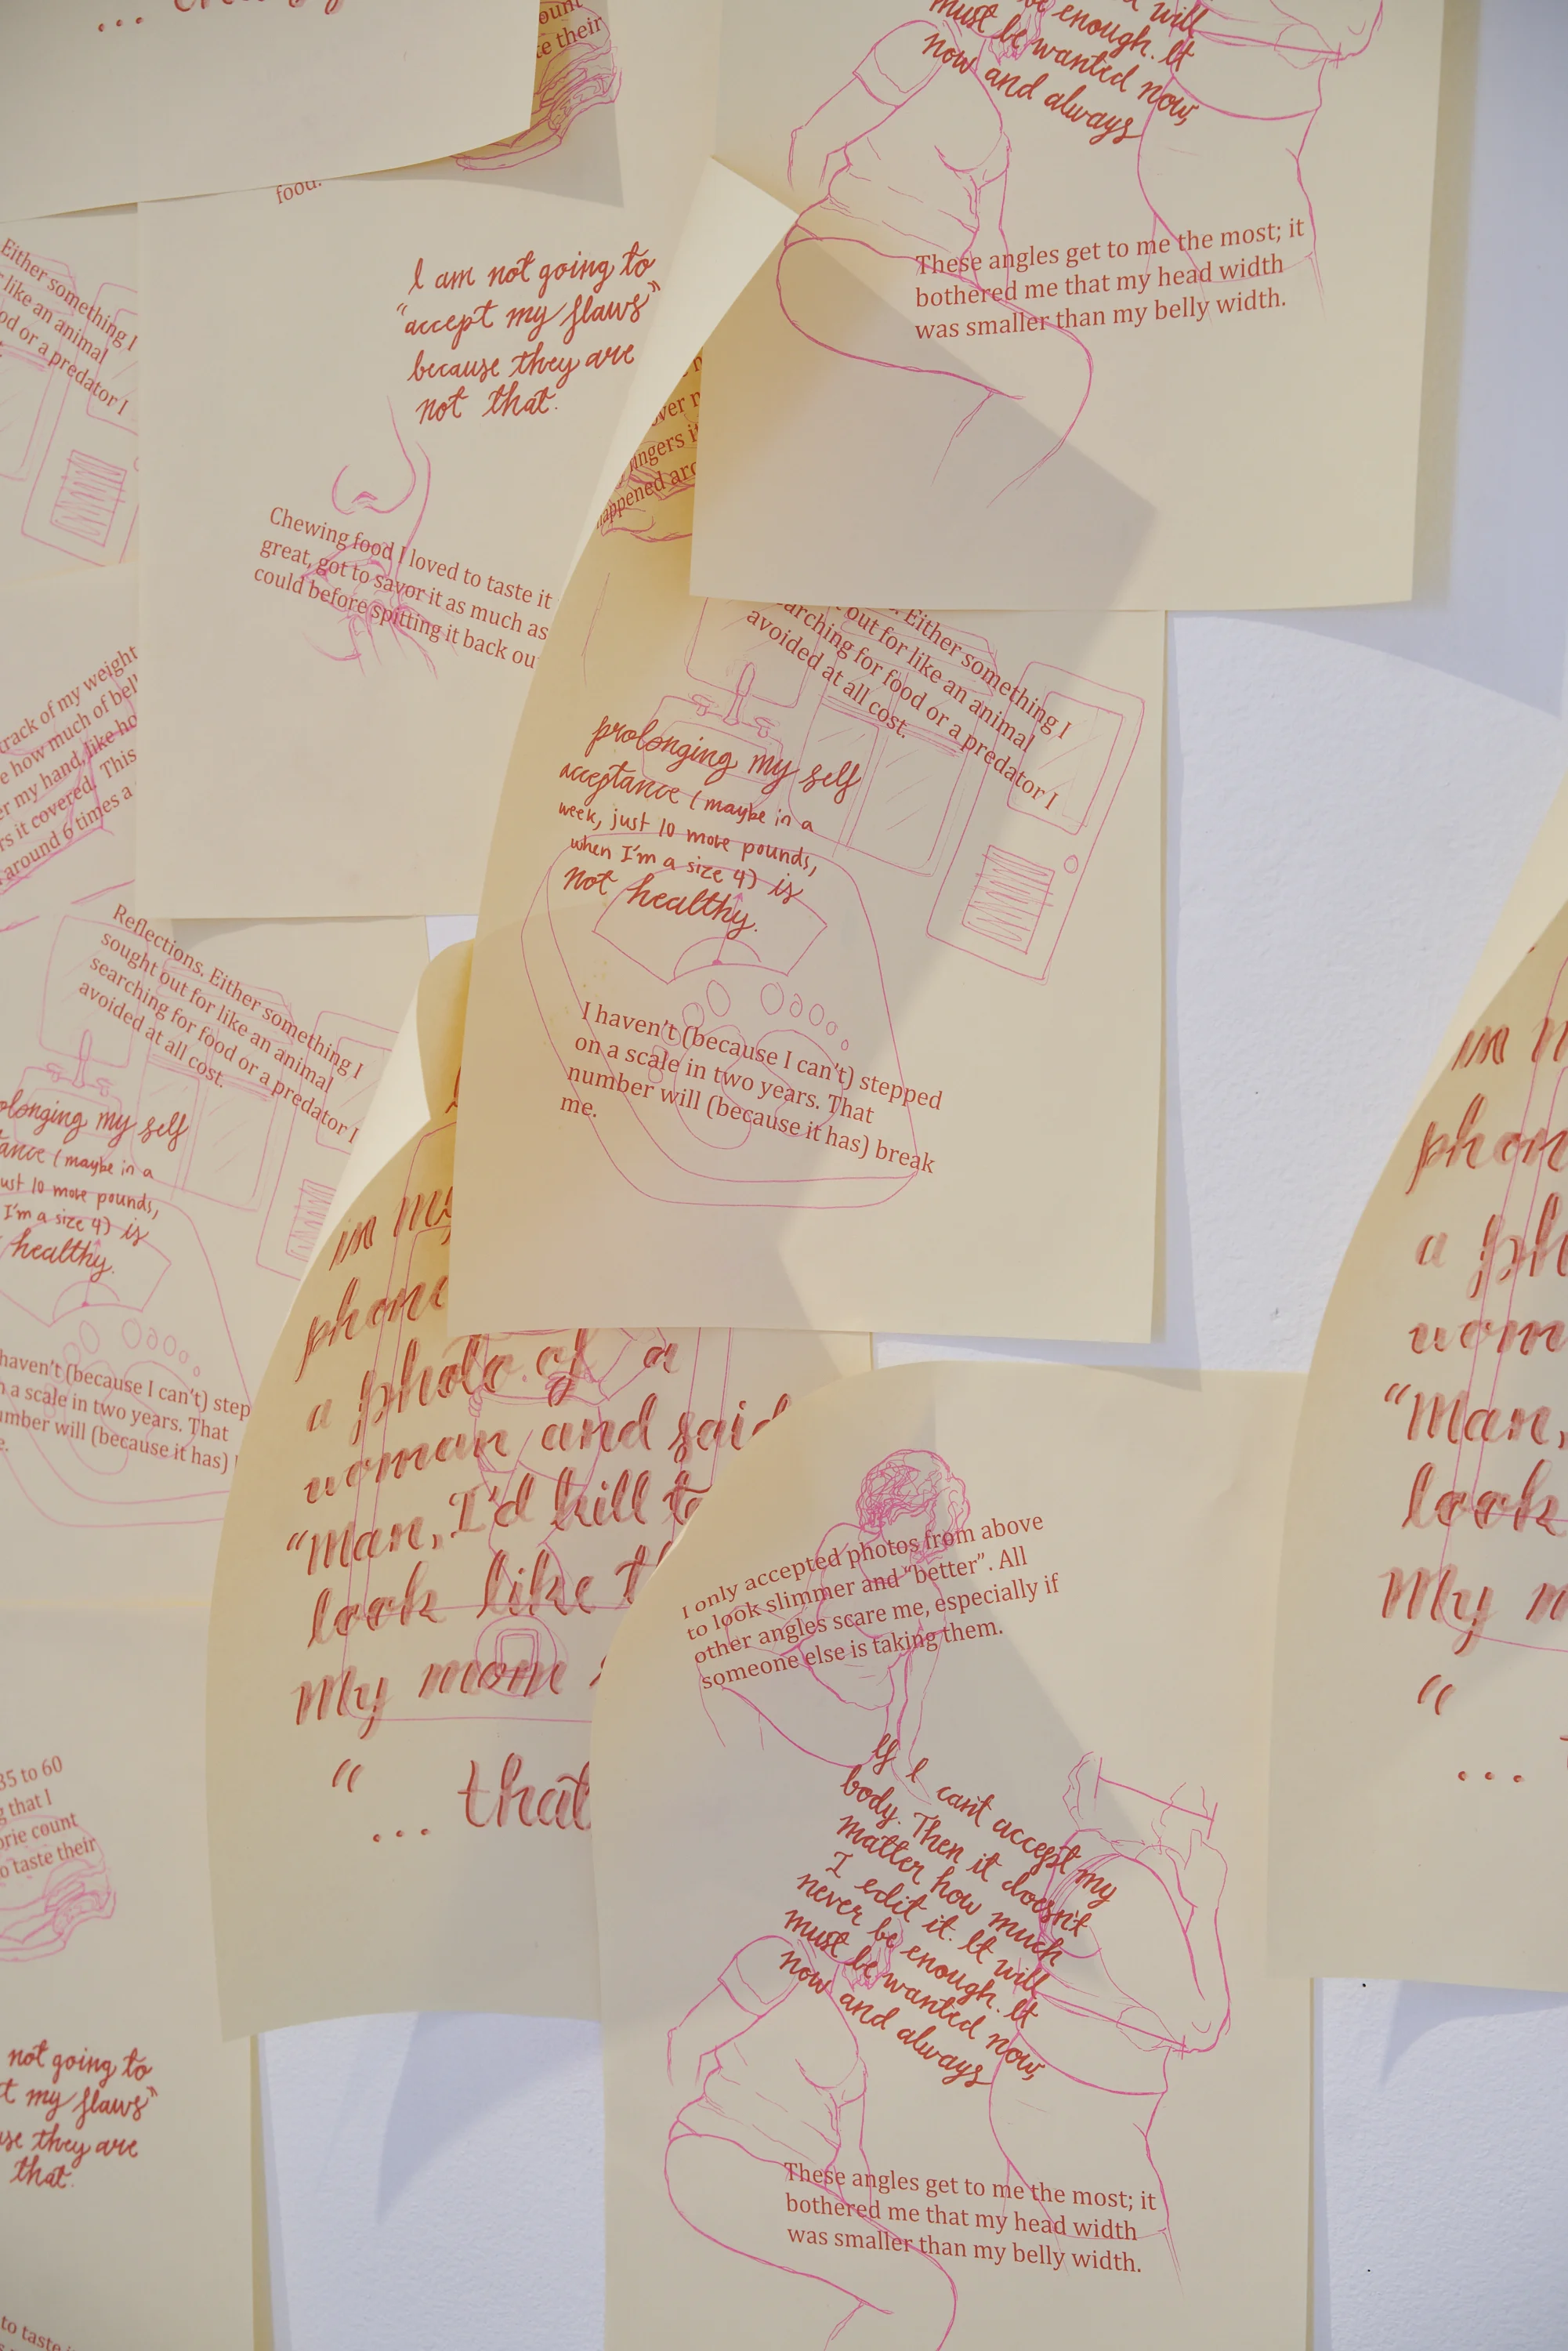 ount
te their
food.
will
must be enough. It
be wanted now,
now and always
These angles get to me the most; it
bothered me that my head width
was smaller than my belly width.
I am not going to
“accept my flaws”
because they are
not that.
Chewing food I loved to taste it
great, got to savor it as much as
could before spitting it back ou
Either something I
like an animal
od or a predator I
ingers i
happened aro
. Either something I
out for like an animal
arching for food or a predator I
avoided at all cost.
prolonging my self
acceptance (maybe in a
week, just 10 more pounds,
when I'm a size 4) is
not healthy.
I haven't (because I can't) stepped
on a scale in two years. That
number will (because it has) break
me.
track of my weight
e how much of bel
er my hand, like ho
rs it covered. This
around 6 times a
Reflections. Either something I
sought out for like an animal
searching for food or a predator I
avoided at all cost.
olonging my self
tance (maybe in a
ust 10 more pounds,
I'm a size 4) is
healthy.
haven't (because I can't) step
a scale in two years. That
umber will (because it has)
in my
phone
a photo of a
woman and said
“Man, I'd kill to
look like t
My mom
“
... that
I only accepted photos from above
to look slimmer and “better”. All
other angles scare me, especially if
someone else is taking them.
If I can't accept my
body. Then it doesn't
matter how much
I edit it. It will
never be enough. It
must be wanted now,
now and always
These angles get to me the most; it
bothered me that my head width
was smaller than my belly width.
in m
phon
a ph
wom
“Man,
look
My m
“
...
35 to 60
g that I
orie count
o taste their
not going to
t my flaws”
use they are
that.
to taste